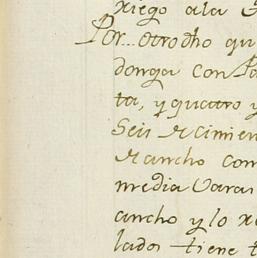 xiego a la
Por.. otro dho qu
donga con Pa
ta, y quatro y
Seis rcimien
rancho com
media varas
ancho y lo xe
lados tiene t